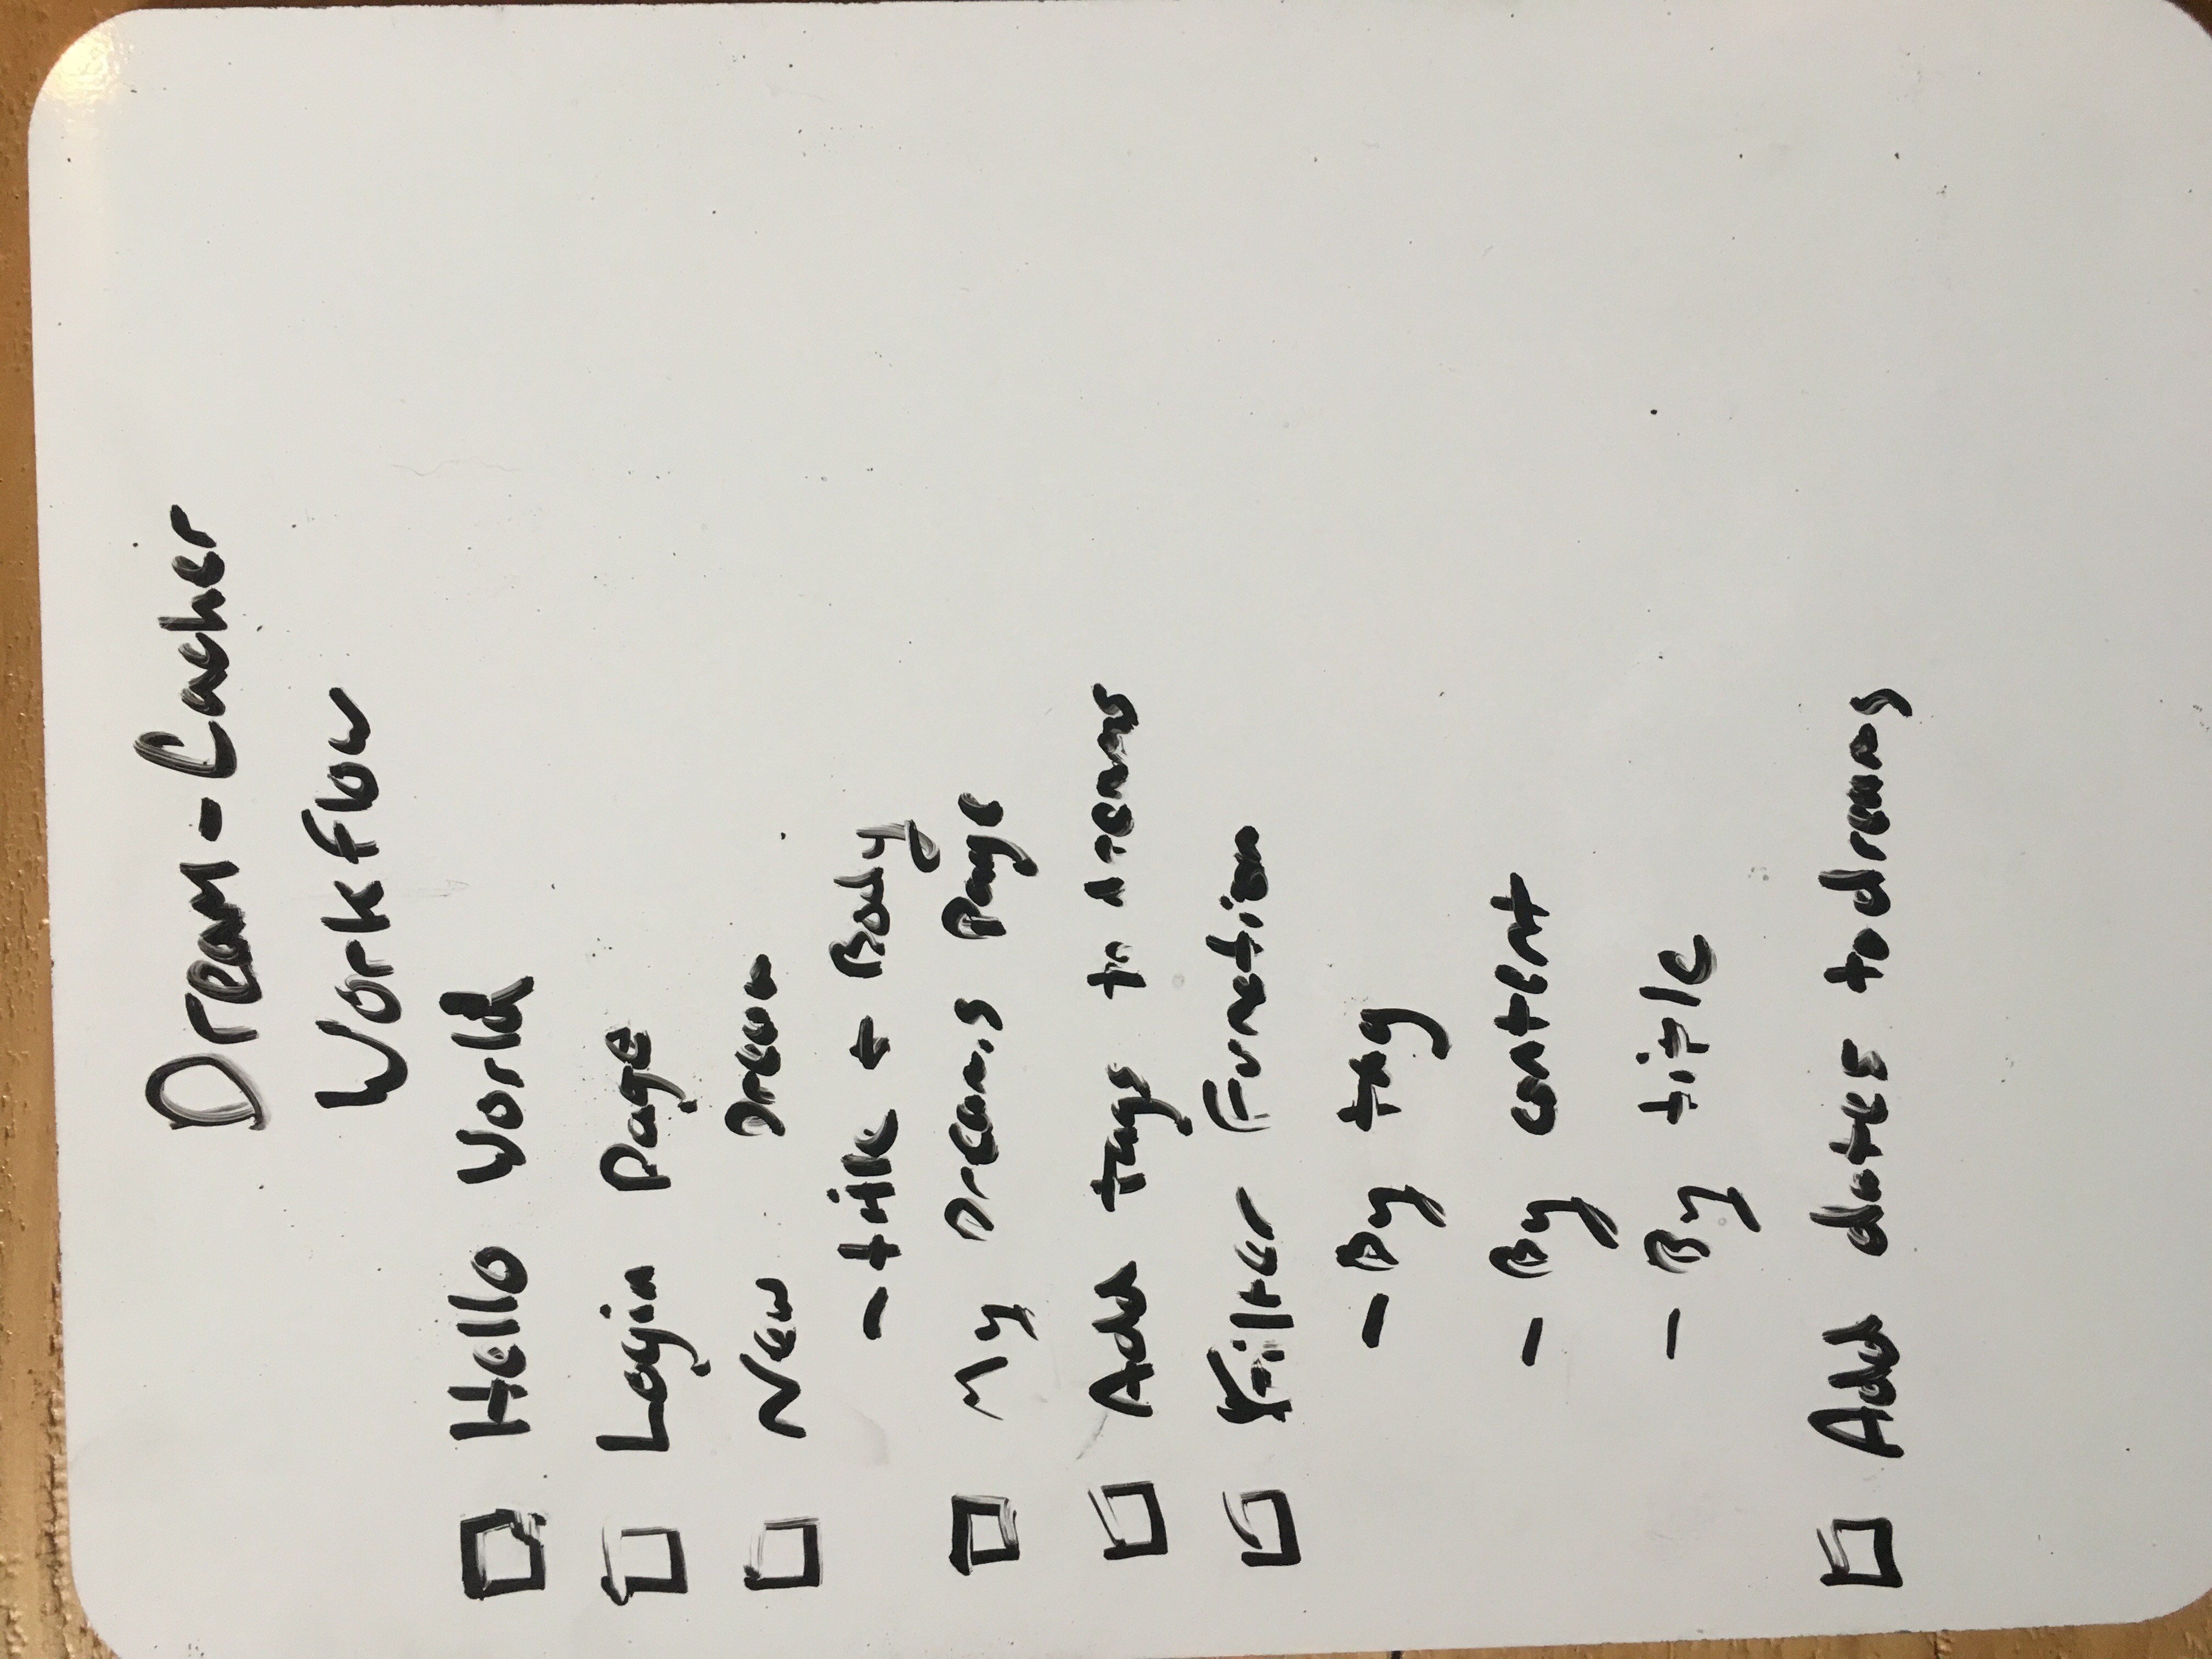 Dream-Cacher
Workflow
Hello World
Login Page
New Dream
- title + Body
My Dreams Page
Add tags to dreams
Filter Function
- By tag
- By content
- By title
Add dates to dreams